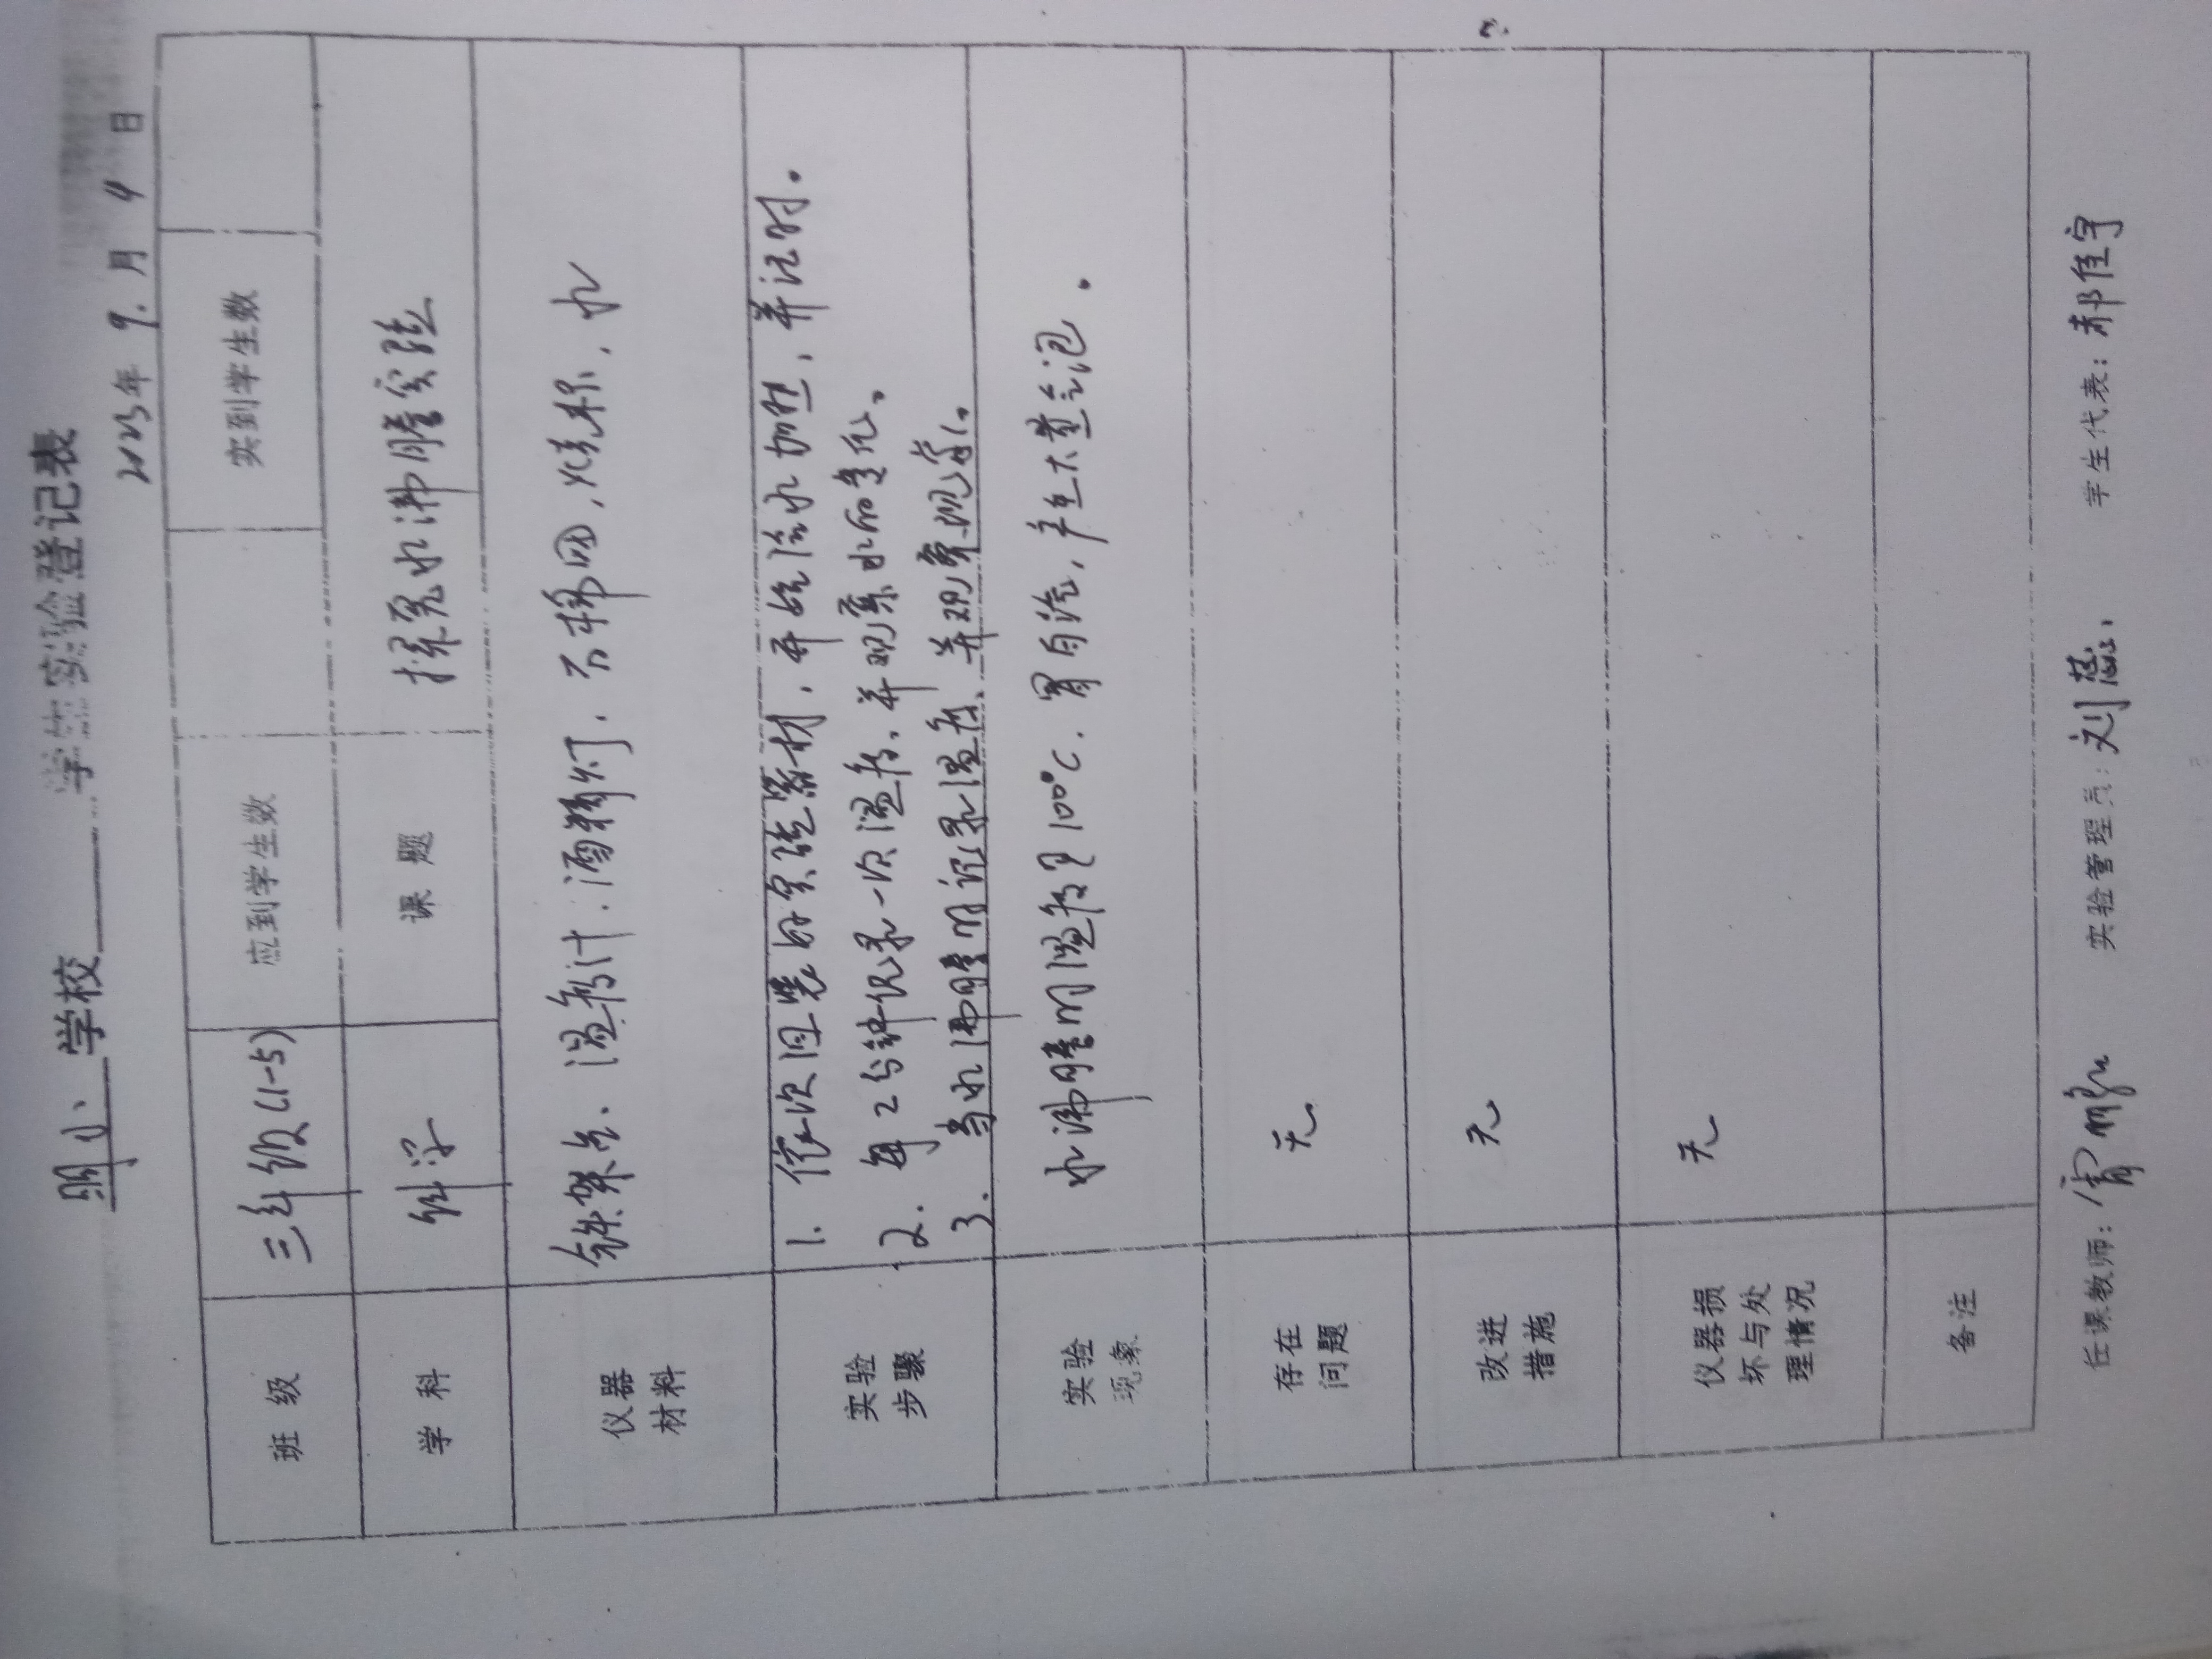 学校 学生实验登记表
2023年 9.月 4 日
班 级 三年级(1-5) 应到学生数 实到学生数
学 科 科学 课 题 探究水沸腾实验
仪器材料 铁架台、温度计、酒精灯、石棉网,烧杯、水
实验步骤 1. 依次组装好实验器材,再给水加热,并记时。
2. 每2分钟记录一次温度、并观察水的变化。
3. 当水沸腾时记录温度、并观察现象。
实验现象 水沸腾时温度是100°C.冒白汽,产生大量气泡。
存在问题 无
改进措施 无
仪器损坏与处理情况 无
备注
任课教师: 实验管理员:刘慧 学生代表:郝佳宇